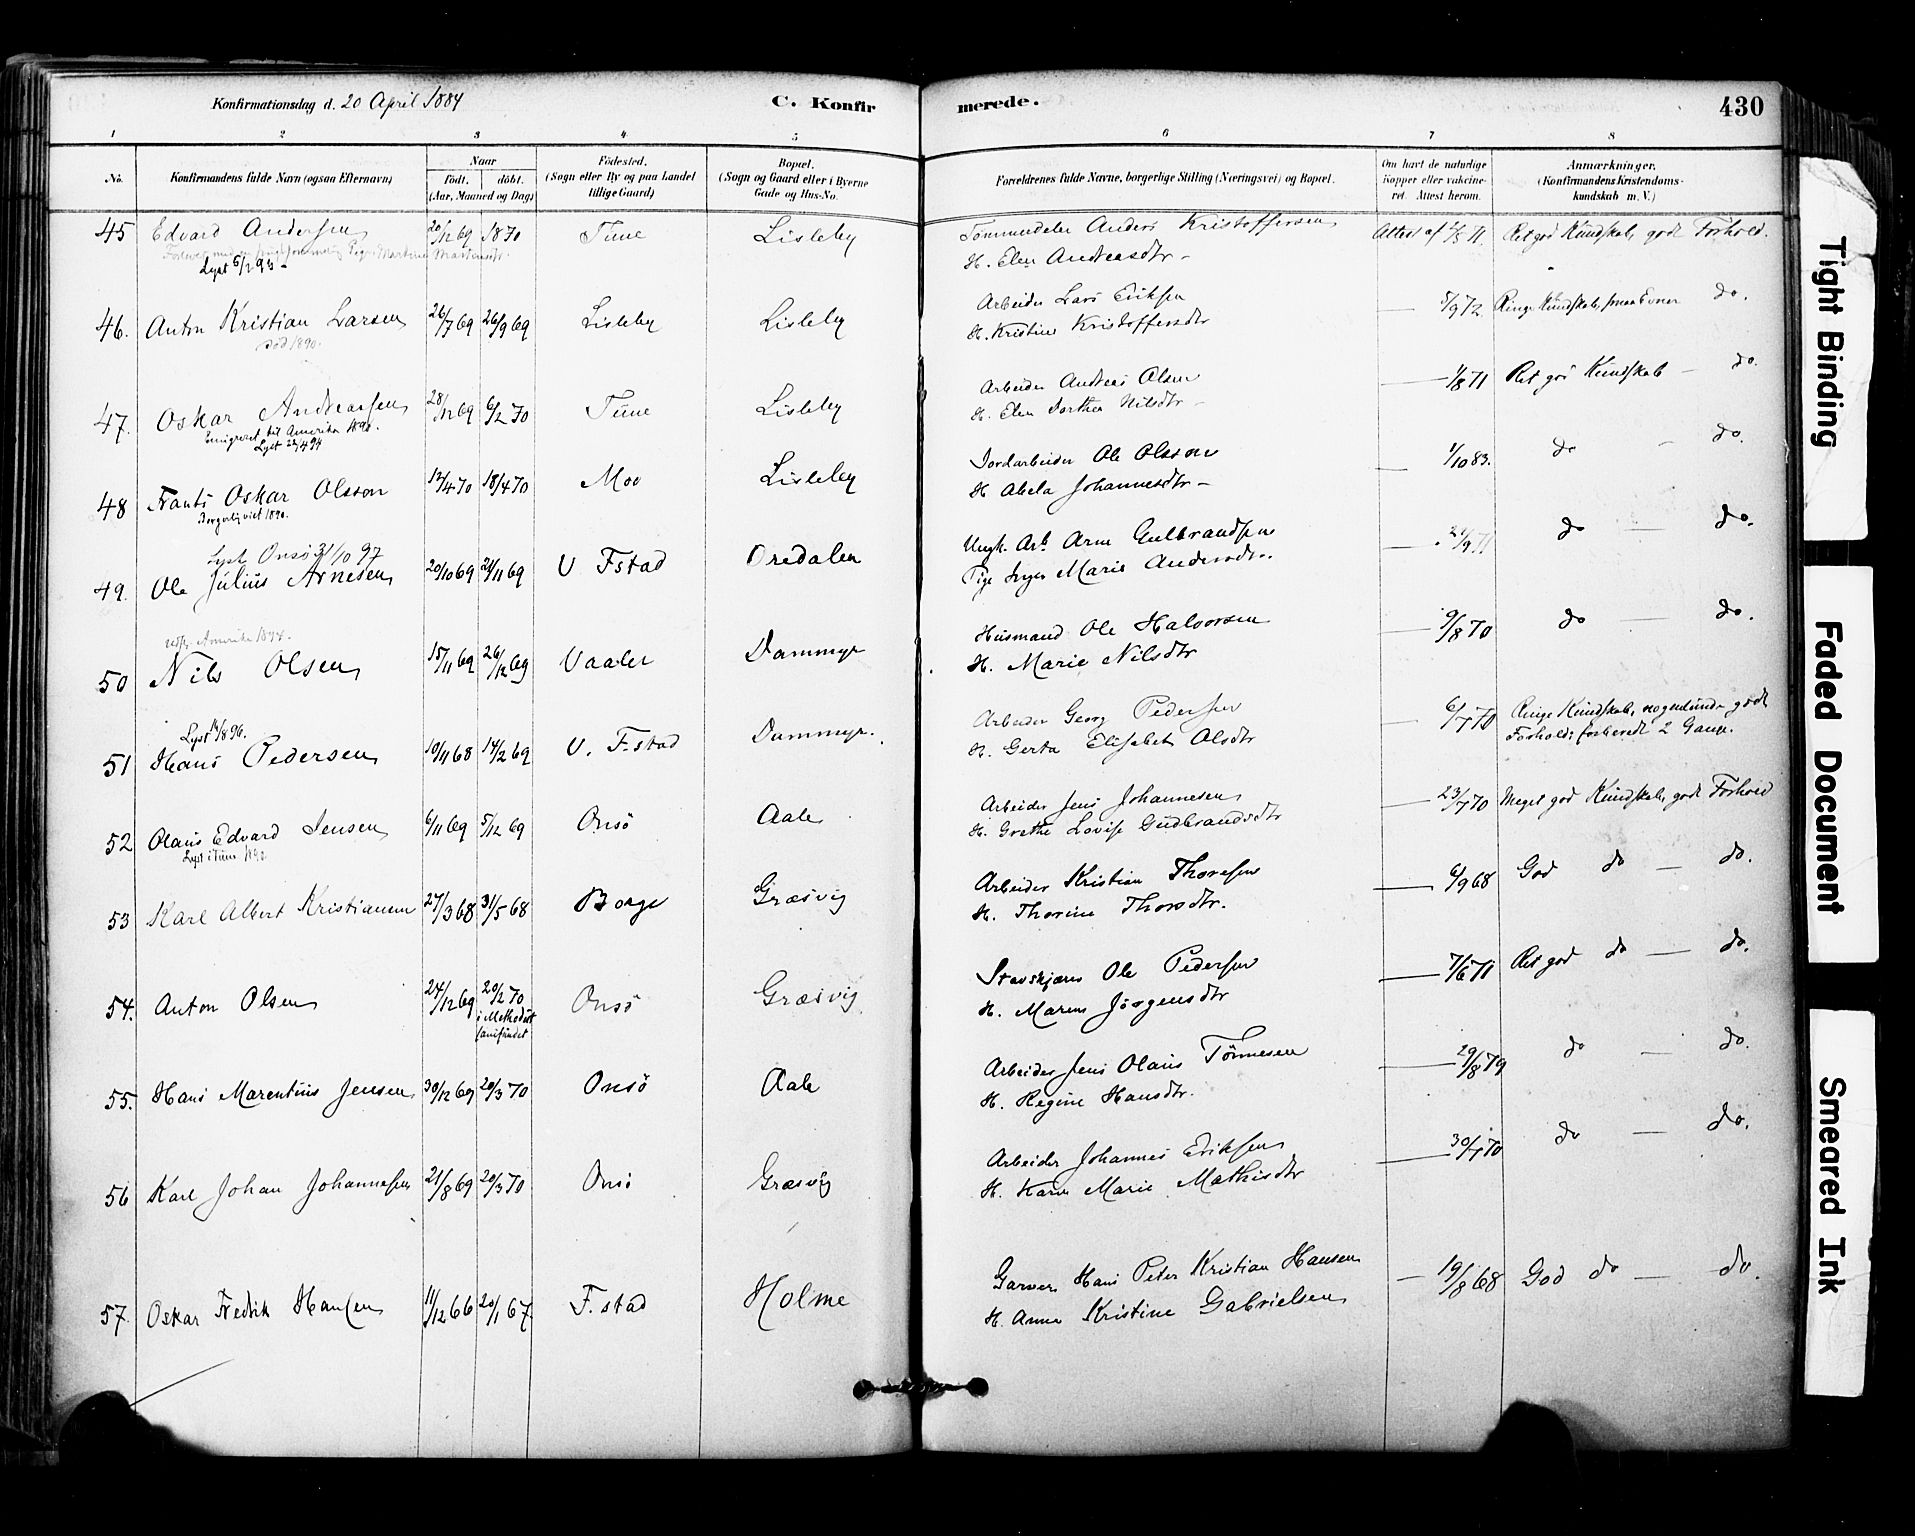 Konfirmationsdag d. 20 April 1884
C. Konfir
merede.
430
1 2 3 4 5 6 7 8
No.
Konfirmandens fulde Navn (ogsaa Efternavn)
Naar
födt. döbt.
(Aar, Maaned og Dag)
Födested.
(Sogn eller By og paa Landet
tillige Gaard)
Bopæl.
(Sogn og Gaard eller i Byerne
Gade og Hus-No.
Forældrenes fulde Navne, borgerlige Stilling (Næringsvei) og Bopæl.
Om havt de naturlige
Kopper eller vakcine-
ret. Attest herom.
Anmærkninger.
(Konfirmandens Kristendoms-
kundskab m. V.)
45 Edvard Andersen 20/12 69 Tune Lisleby
Lyst
Anders Kristoffersen Attest af Ret god Kundskab, godt Forhold.
H. Elen Andreasdtr
46. Anton Kristian Larsen 26/7 69 26/9 69 Lisleby Lisleby
død 1890.
Arbeider Lars Eriksen 5/9 72 Ringe Kundskab, smaa Evner do.
H. Kristine Kristoffersdtr
47. Oskar Andreassen 28/12 69 6/2 70 Tune Lisleby
Emigreret til Amerika
Lyst
Arbeider Andreas Olsen 1/8 71 Ret god Kundskab do.
H. Elen Dorthea Nilsdtr
48 Frants Oskar Olsson 12/4 70 18/4 70 Moo Lisleby
Borgerlig viet 1890.
Jordarbeider Ole Olsson 1/10 83. do do.
H Abela Johannesdtr
Lyst Onsö 31/10 97
49. Ole Julius Arnesen 20/10 69 21/11 69 V Fstad Oredalen
Ungk. Arb. Arne Gulbrandsen do do.
Pige Inger Marie Andersdtr.
Amerika
50 Nils Olsen 15/11 69 26/12 69 Vaaler Dammyr
Husmand Ole Halvorsen 9/8 70 do do.
H. Marie Nilsdtr
Lyst
51 Hans Pedersen 10/11 68 14/2 69 V. F.stad Dammyr.
Arbeider Georg Pedersen 6/7 70 Ringe Kundskab, nogenlunde godt
H. Gerta Elisabeth Olsdtr Forhold; forberedt 2 Gange.
52 Olaus Edvard Jensen 6/11 69 5/12 69 Onsö Aale
Lyst i Tune
Arbeider Jens Johannesen 23/7 70 Meget god Kundskab, godt Forhold
H. Grethe Lovise Gudbrandsdtr
53 Karl Albert Kristiansen 27/3 68 31/5 68 Borge Græsvig
Arbeider Kristian Thoresen 6/9 68 God do do.
H. Thorine Thorsdtr.
54. Anton Olsen 24/12 69 20/2 70 Onsö Græsvig
i Methodist
samfundet
Stavskjærer Ole Pedersen 7/6 71 Ret god do do.
H. Maren Jörgensdtr
55. Hans Marentius Jensen 30/12 69 20/3 70 Onsö Aale
Arbeider Jens Olaus Tönnesen 29/8 79 do do.
H. Regine Hansdtr.
56 Karl Johan Johannesen 21/8 69 20/3 70 Onsö Græsvig
Arbeider Johannes Eriksen 30/7 70 do do.
H. Karen Marie Mathisdtr
57. Oskar Fredrik Hansen 11/12 66 20/1 67 F. stad Holme
Garver Hans Peter Kristian Hansen 19/8 68 God do do.
H. Anna Kristine Gabrielsen
Tight Binding
Faded Document
Smeared Ink